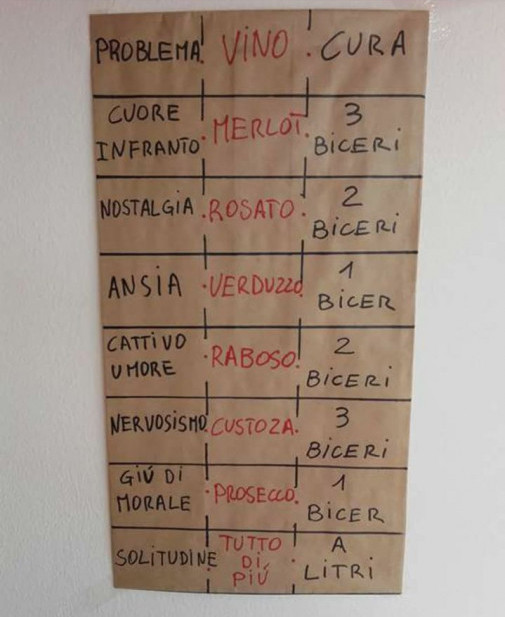 PROBLEMA VINO CURA
CUORE
INFRANTO MERLOT 3
BICERI
NOSTALGIA ROSATO 2
BICERI
ANSIA VERDUZZO 1
BICER
CATTIVO
UMORE RABOSO 2
BICERI
NERVOSISMO CUSTOZA 3
BICERI
GIÚ DI
MORALE PROSECCO 1
BICER
SOLITUDINE TUTTO
DI
PIÚ A
LITRI